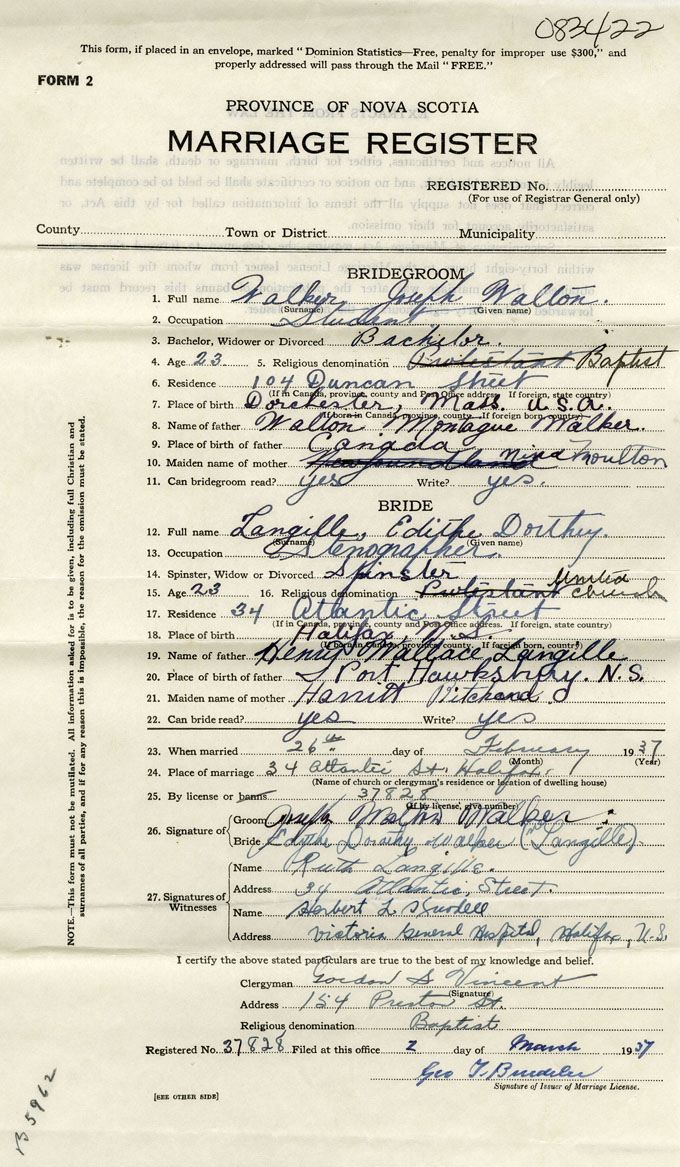 083422
This form, if placed in an envelope, marked "Dominion Statistics—Free, penalty for improper use $300," and
properly addressed will pass through the Mail "FREE."
FORM 2
PROVINCE OF NOVA SCOTIA
MARRIAGE REGISTER
REGISTERED No.
(For use of Registrar General only)
County Town or District Municipality
BRIDEGROOM
1. Full name Walker Joseph Walton.
(Surname) (Given name)
2. Occupation Student
3. Bachelor, Widower or Divorced Bachelor.
4. Age 23 5. Religious denomination Protestant Baptist
6. Residence 104 Duncan Street
(If in Canada, province, county and Post Office address. If foreign, state country)
7. Place of birth Dorchester, Mass. U.S.A.
(If born in Canada, province, county. If foreign born, country)
8. Name of father Walton Montague Walker.
9. Place of birth of father Canada
10. Maiden name of mother Newfoundland Nina Moulton
11. Can bridegroom read? yes Write? yes.
BRIDE
12. Full name Langille, Edithe Dorthey.
(Surname) (Given name)
13. Occupation Stenographer.
14. Spinster, Widow or Divorced Spinster
15. Age 23 16. Religious denomination Protestant United Church
17. Residence 34 Atlantic Street
(If in Canada, province, county and Post Office address. If foreign, state country)
18. Place of birth Halifax, N.S.
(If born in Canada, province, county. If foreign born, country)
19. Name of father Henry Wallace Langille
20. Place of birth of father Port Hawksbury. N.S.
21. Maiden name of mother Harritt Pitchard
22. Can bride read? yes Write? yes
23. When married 26th day of February 1937
(Month) (Year)
24. Place of marriage 34 Atlantic St. Halifax.
(Name of church or clergyman's residence or location of dwelling house)
25. By license or banns 37828
(If by license, give number)
26. Signature of
Groom Joseph Walton Walker.
Bride Edythe Dorothy Walker (Langille).
27. Signatures of Witnesses
Name Ruth Langille.
Address 34 Atlantic Street.
Name Herbert L.
Address Victoria General Hospital, Halifax, N.S.
I certify the above stated particulars are true to the best of my knowledge and belief.
Clergyman Gordon S Vincent
(Signature)
Address 154 Preston St.
Religious denomination Baptist
Registered No. 37828 Filed at this office 2 day of March 1937
Geo T.
Signature of Issuer of Marriage License.
[SEE OTHER SIDE]
NOTE.—This form must not be mutilated. All information asked for is to be given, including full Christian and
surnames of all parties, and if for any reason this is impossible, the reason for the omission must be stated.
B 5962